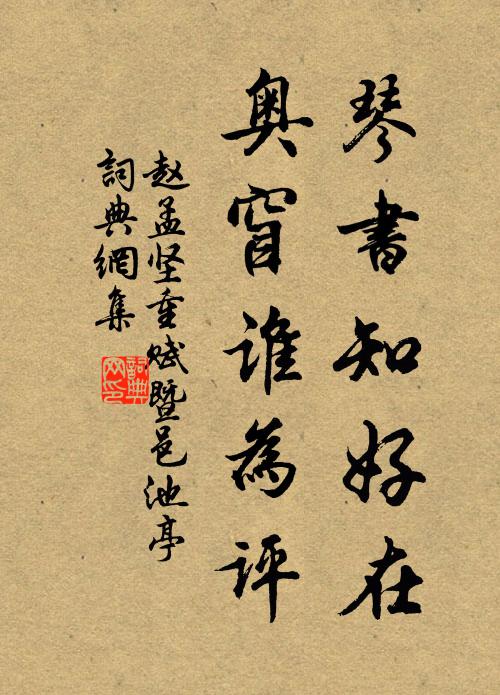 琴書知好在
奥窅谁為評
赵孟坚重赋暨邑池亭
詞典網集
詞典网印